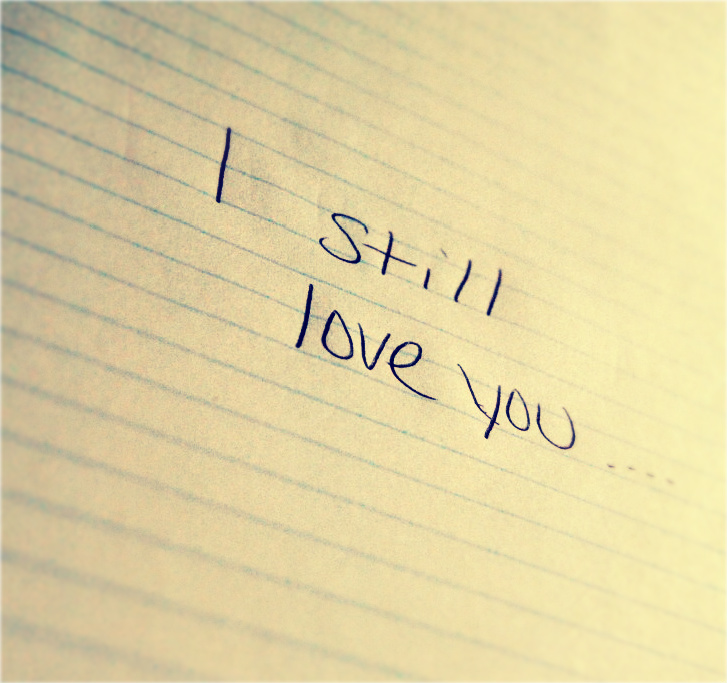 I
still
love you ....